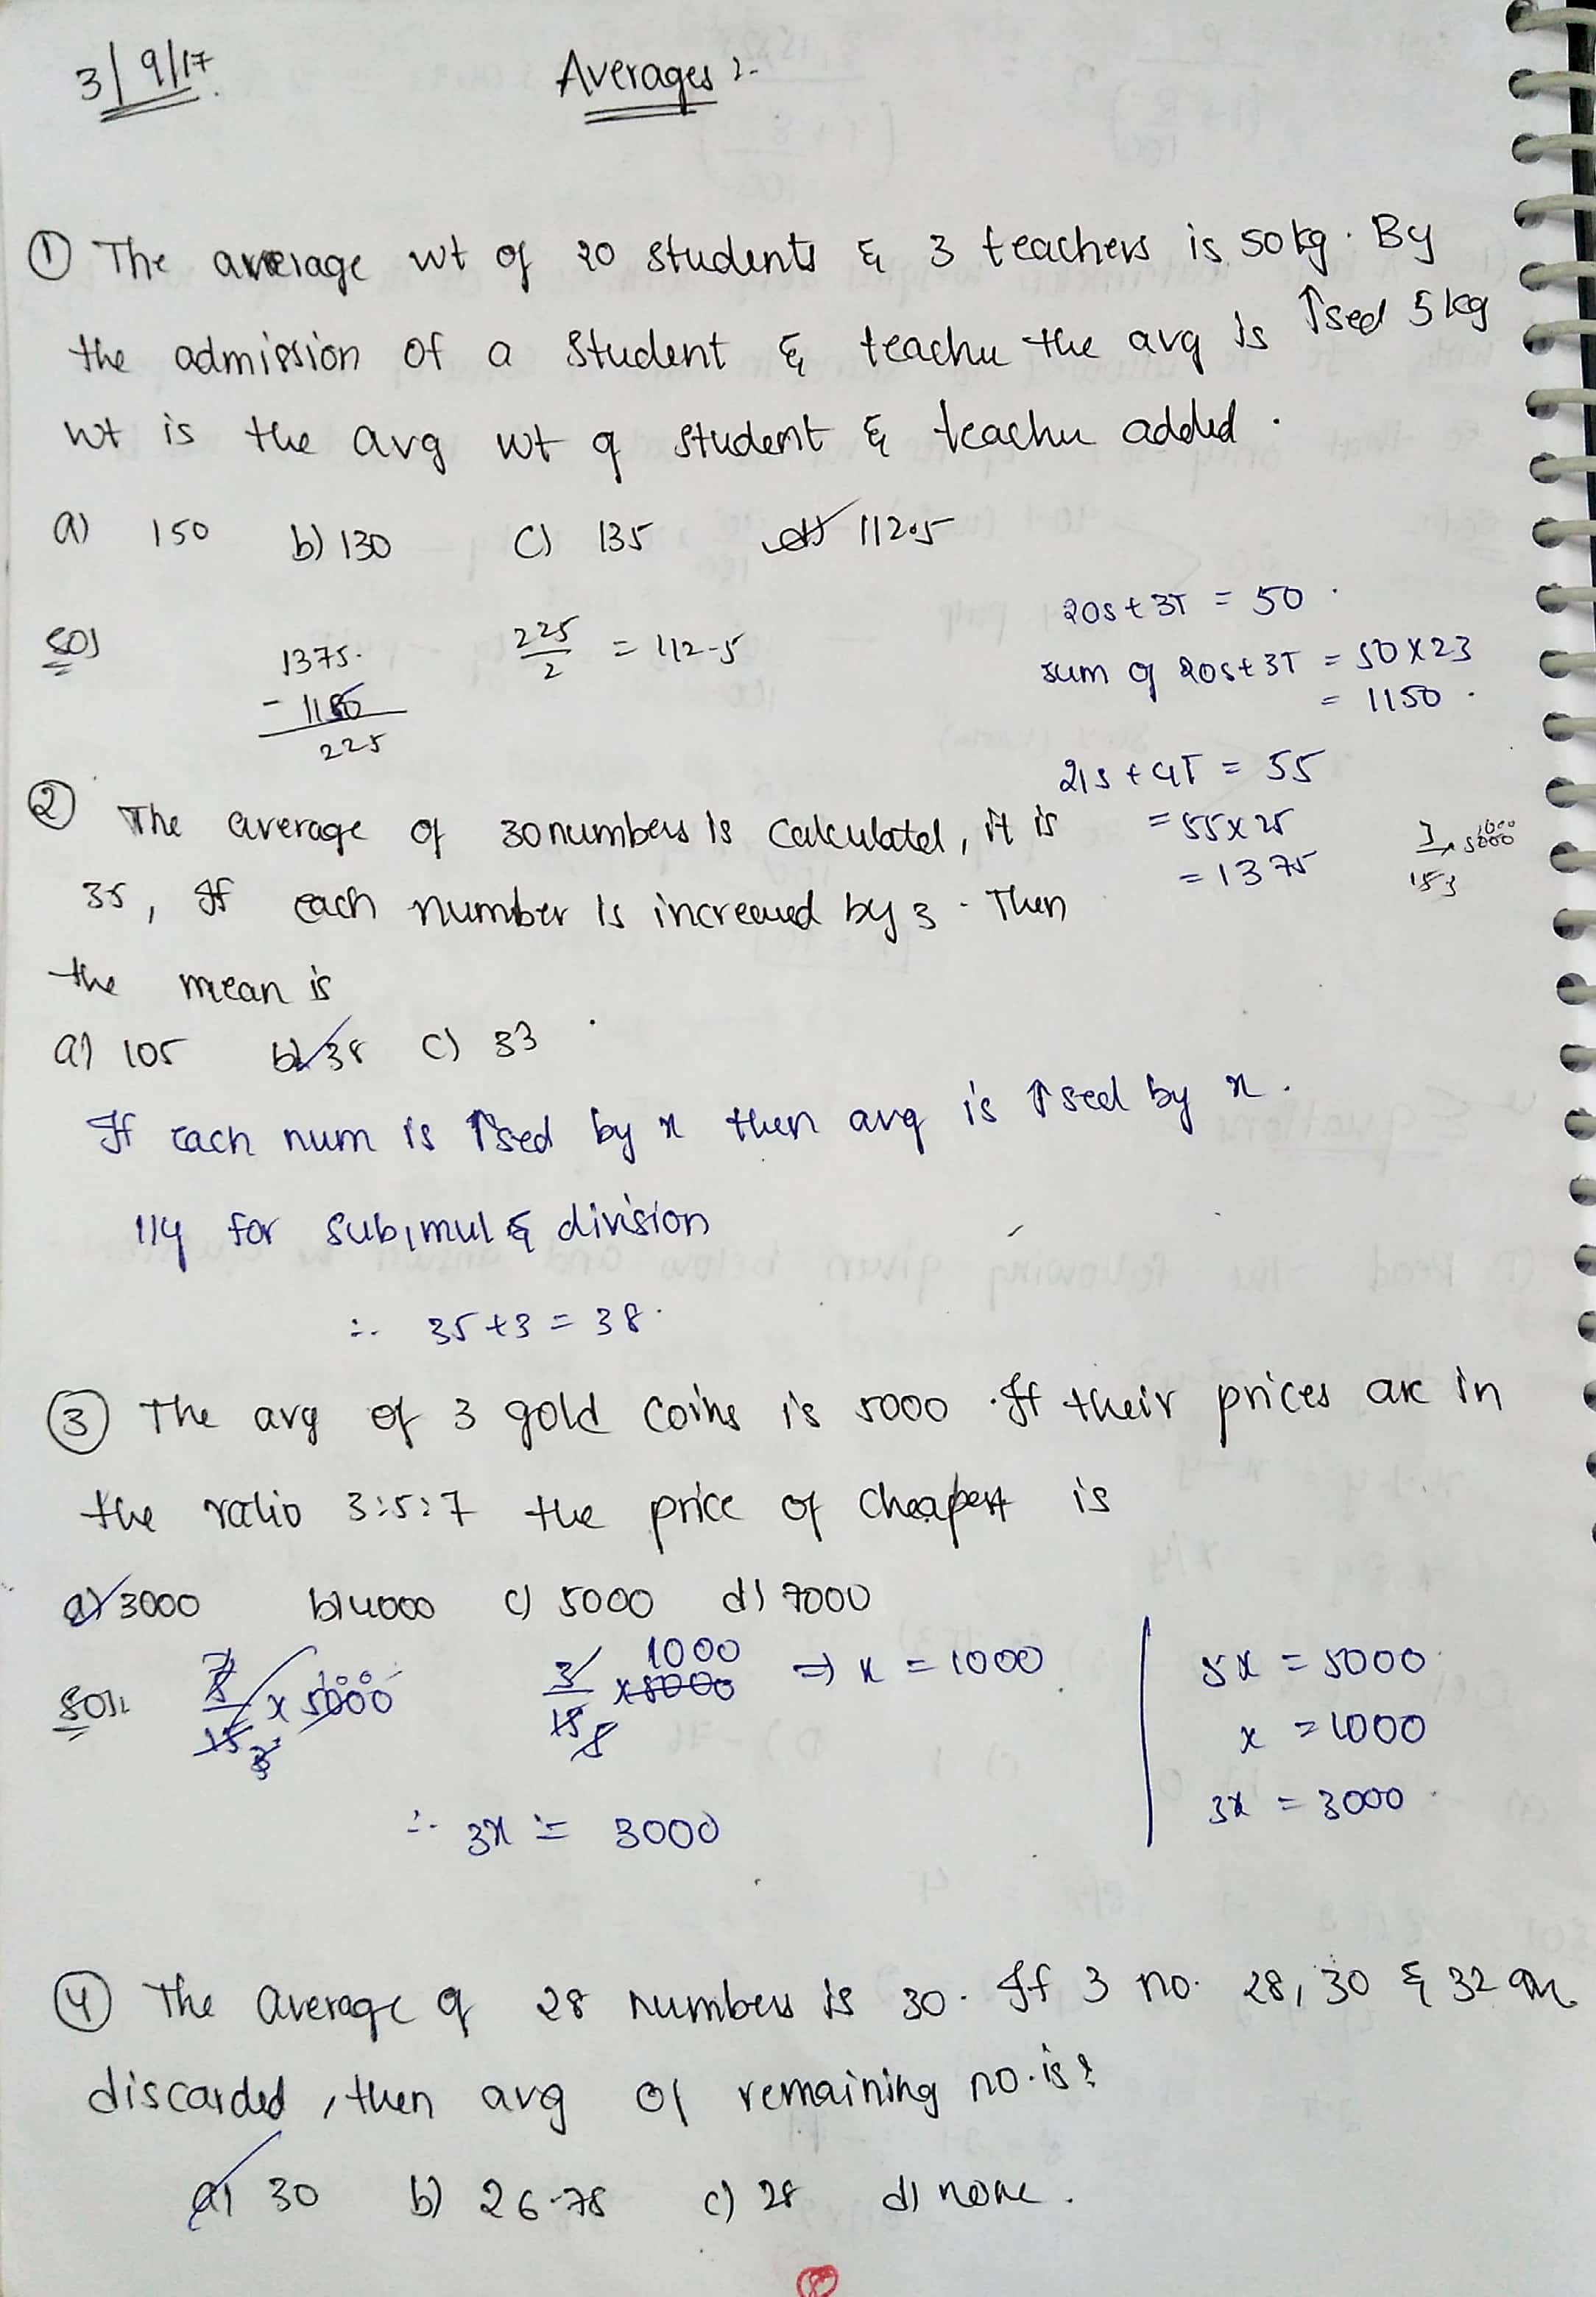 3/9/17
Averages :-
① The average wt of 20 students & 3 teachers is 50kg. By
the admission of a student & teacher the avg is ↑sed 5kg
wt is the avg wt of student & teacher added.
a) 150 b) 130 c) 135 d) 112.5
Sol
1375.
- 1150
225
225/2 = 112.5
20s + 3T = 50.
sum of 20s + 3T = 50 x 23
= 1150.
21s + 4T = 55
= 55 x 25
= 1375
② The average of 30 numbers is calculated, it is
35, If each number is increased by 3. Then
the mean is
a) 105 b) 38 c) 33
If each num is ↑sed by x then avg is ↑sed by x.
lly for sub, mul & division
∴ 35 + 3 = 38.
③ The avg of 3 gold coins is 5000. If their prices are in
the ratio 3:5:7 the price of cheapest is
a) 3000 b) 4000 c) 5000 d) 7000
3/15 x 5000 1000 ⇒ x = 1000
∴ 3x = 3000
5x = 5000
x = 1000
3x = 3000.
④ The average of 28 numbers is 30. If 3 no. 28, 30 & 32 are
discarded, then avg of remaining no. is?
a) 30 b) 26.78 c) 28 d) none.